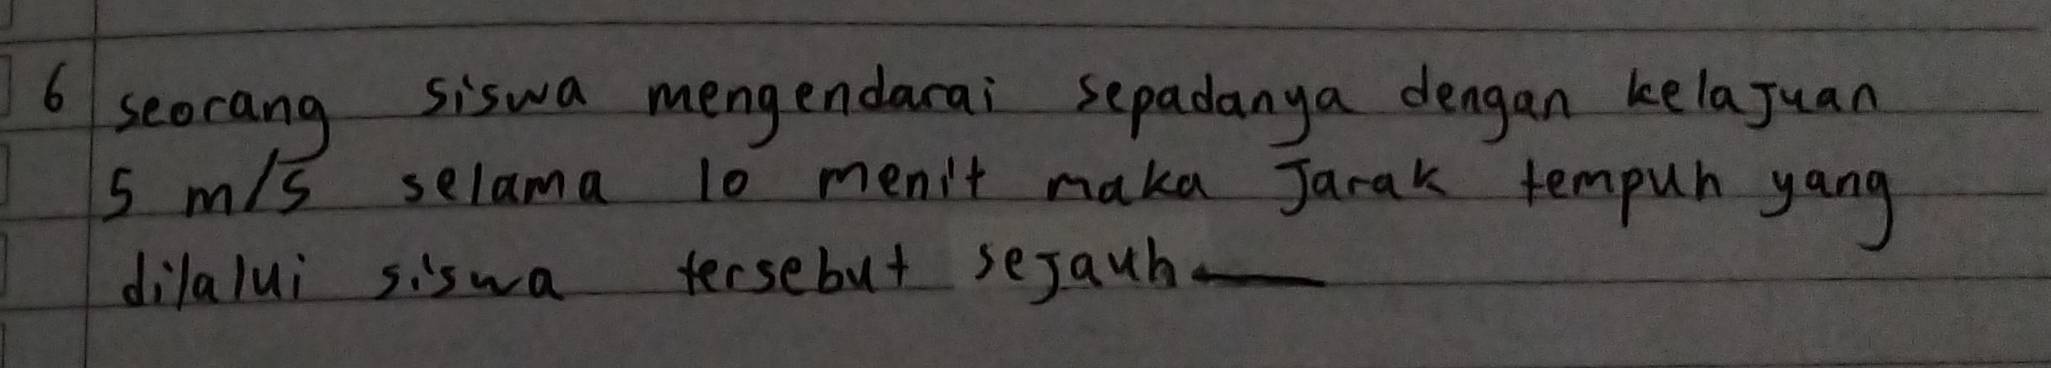 6 seorang siswa mengendarai sepadanya dengan kelajuan
5 m/s selama 10 menit maka Jarak tempuh yang
dilalui siswa tersebut sejauh —